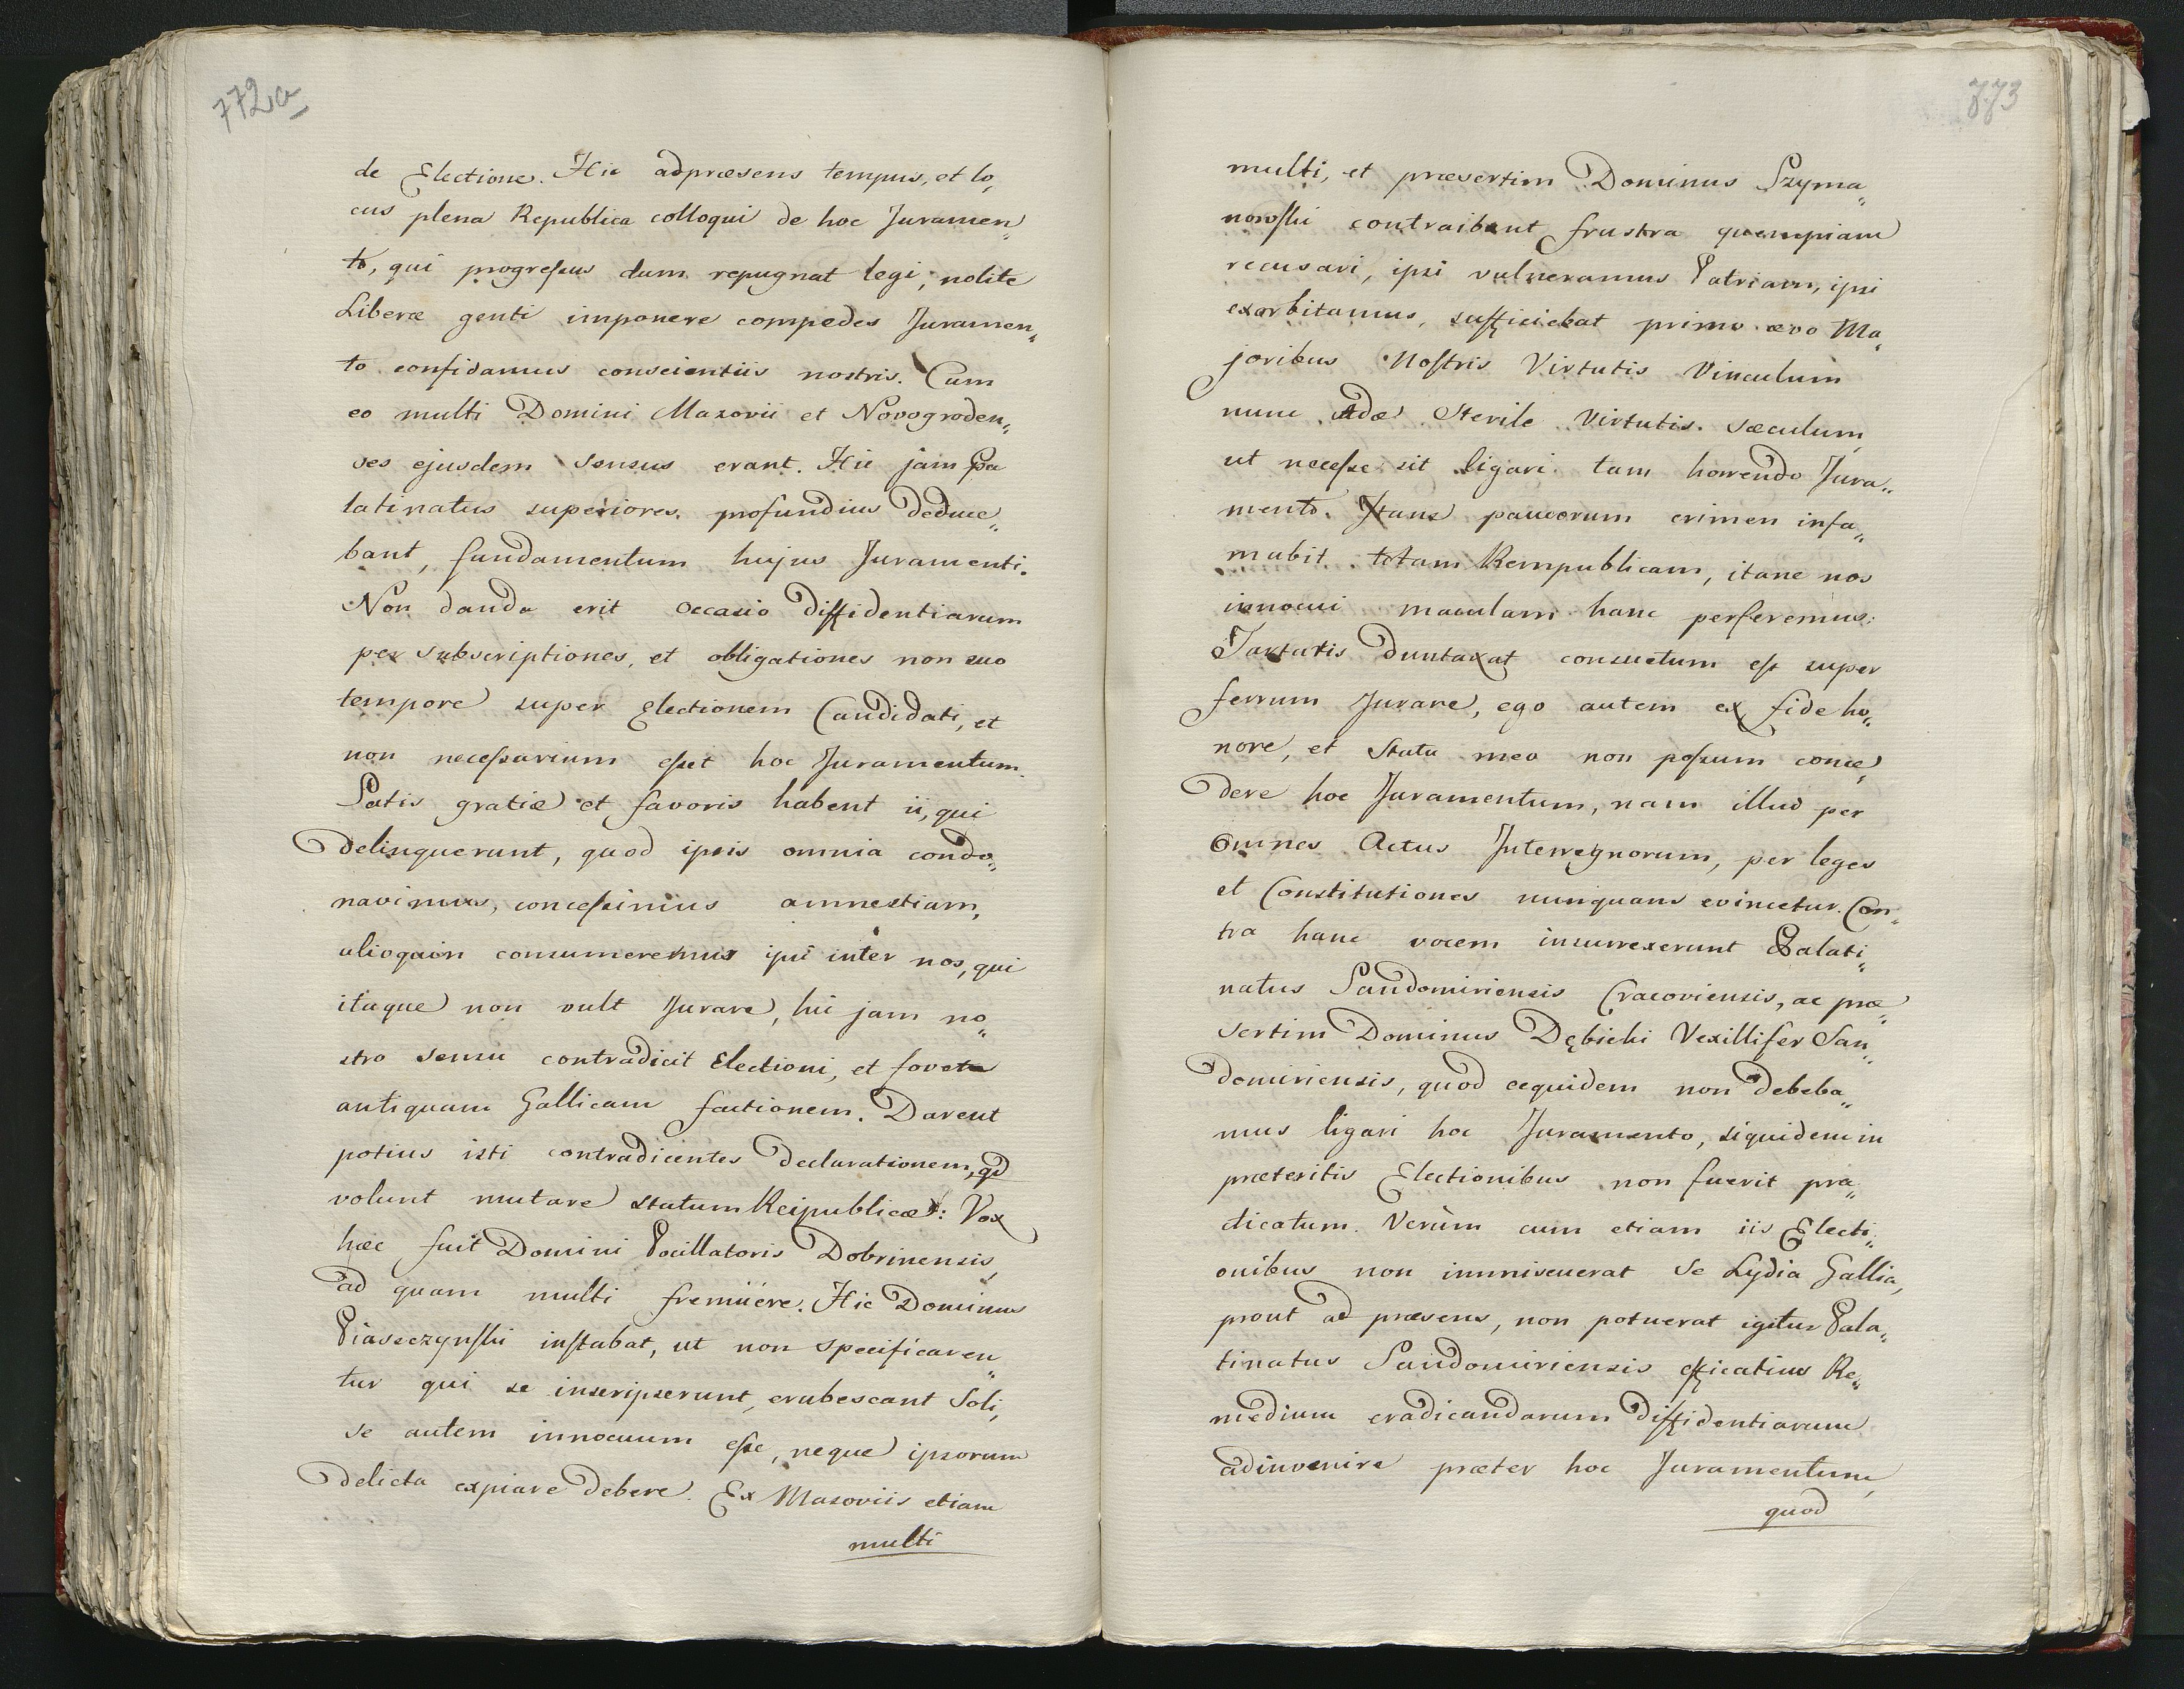 772a
de Electione. Hic adpræsens tempus, et lo„
cus plena Republica colloqui de hoc Juramen„
to, qui progreſsus dum repugnat legi; nolite
Liberæ genti imponere compedes Juramen„
to confidamus conscientiis nostris. Cum
eo multi Domini Mazovii et Novogroden„
ses ejusdem sensus erant. Hic jam Pa
latinatus superiores profundius deduce„
bant, fundamentum hujus Juramenti.
Non danda erit occasio diffidentiarum
per subscriptiones, et obligationes non suo
tempore super Electionem Candidati, et
non neceſsarium eſset hoc Juramentum.
Satis gratiæ et favoris habent ii, qui
delinquerunt, quod ipsis omnia condo„
navimus, conceſsimus amnestiam,
alioquin consumeremus ipsi inter nos, qui
itaque non vult Jurare, hic jam no„
stro sensu contradicit Electioni, et fovet
antiquam Gallicam factionem. Darent
potius isti contradicentes declarationem, qd
volunt mutare statum Reipublicæ: Vox
hæc fuit Domini Pocillatoris Dobrinensis,
ad quam multi fremüere. Hic Dominus
Piaseczynſki inſtabat, ut non specificaren„
tur qui se inscripserunt, erubescant Soli,
se autem innocuum eſse, neque ipsorum
delicta expiare debere. Ex Masoviis etiam
multi
773
multi, et præsertim Dominus Szyma„
nowſki contraibant frustra quempiam
recusari, ipsi vulneramus Patriam, ipsi
exorbitamus, sufficiebat primo ævo Ma„
joribus Noſtris Virtutis Vinculum
nunc adæ Sterile Virtutis sæculum,
ut neceſse sit ligari tam horrendo Jura„
mento. Itane paucorum crimen infa„
mabit totam Rempublicam, itane nos
innocui maculam hanc perferemus:
Tartaris duntaxat consuetum eſt super
ferrum Jurare, ego autem ex fide ho„
nore, et Statu meo non poſsum conce„
dere hoc Juramentum, nam illud per
omnes Actus Interregnorum, per leges
et Constitutiones nunquam evincetur. Con„
tra hanc vocem insurrexerunt Palati„
natus Sandomiriensis Cracoviensis, ac præ„
sertim Dominus Dębicki Vexillifer San„
domiriensis, quod eequidem non debeba„
mus ligari hoc Juramento, siquidem in
præteritis Electionibus non fuerit præ„
dicatum. Verùm cum etiam iis Electi„
onibus non immiscuerat se Lydia Gallia,
prout ad præsens, non potuerat igitur Pala„
tinatus Sandomiriensis efficatius Re„
medium eradicandarum diffidentiarum
adinvenire præter hoc Juramentum,
quod